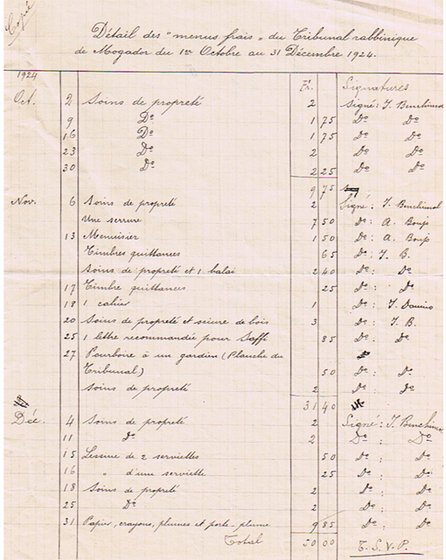 Copie
Détail des "menus frais" du Tribunal rabbinique
de Mogador du 1er Octobre au 31 Décembre 1924.
1924 Fr. Signatures
Oct. 2 Soins de propreté 2 Signé: J.
9 Do 1 75 Do Do
16 Do 1 75 Do Do
23 Do 2 Do Do
30 Do 2 25 Do Do
9 75
Nov. 6 Soins de propreté 2 Signé: J.
Une serrure 7 50 Do: A.
13 Menuisier 1 50 Do: A.
Timbres quittances 65 Do: J. B.
Soins de propreté et 1 balai 2 40 Do: Do
17 Timbre quittances 25 Do: Do
18 1 cahier 1 Do: J.
20 Soins de propreté et sciure de bois 3 Do: J. B.
25 1 lettre recommandée pour Saffi 85 Do: Do
27 Pourboire à un gardien (Planche du
Tribunal) 50 Do: Do
Soins de propreté 2 Do Do
31 40
Déc. 4 Soins de propreté 2 Signé: J.
11 Do 2 Do: Do
15 Lessive de 2 serviettes 50 Do: Do
16 " d'une serviette 25 Do: Do
18 Soins de propreté 2 Do: Do
25 Do 2 Do: Do
31 Papier, crayons, plumes et porte-plume 9 85 Do: Do
Total 50 00 T. S. V. P.